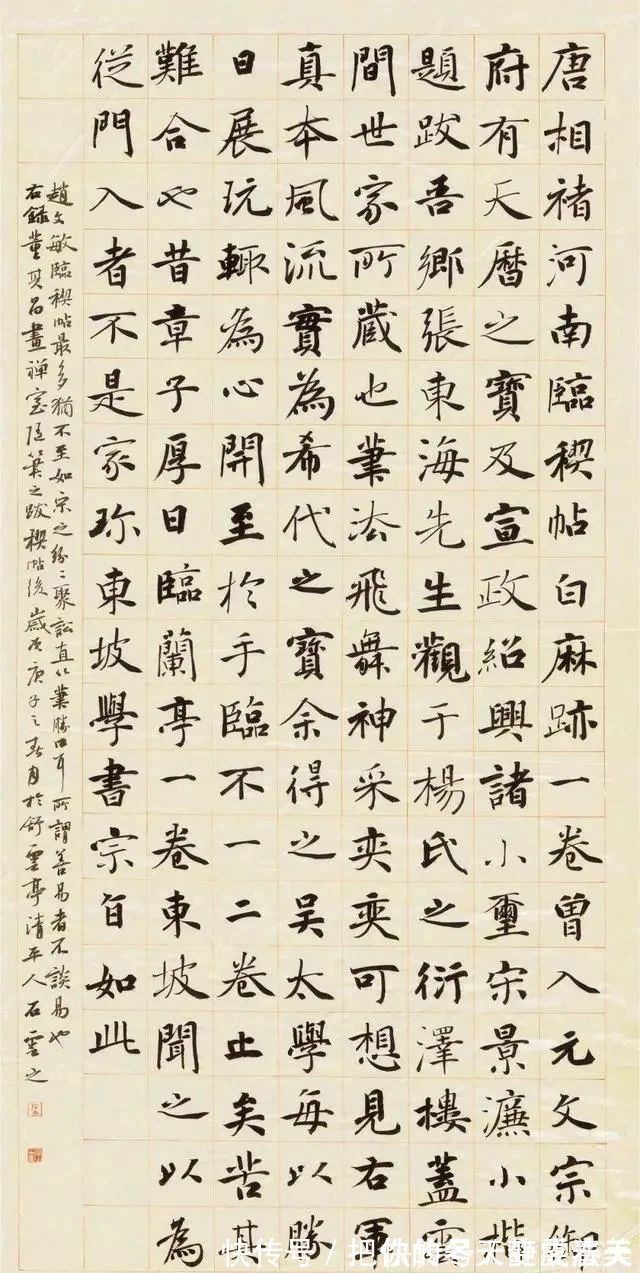 唐相褚河南臨禊帖白麻跡一卷曾入元文宗御
府有天曆之寶及宣政紹興諸小璽宋景濂小楷
題跋吾鄉張東海先生觀于楊氏之衍澤樓蓋雲
間世家所蔵也筆法飛舞神采奕奕可想見右軍
真本風流實為希代之寶余得之吳太學每以勝
日展玩輒為心開至於手臨不一二卷止矣苦其
難合也昔章子厚日臨蘭亭一卷東坡聞之以為
從門入者不是家珎東坡學書宗旨如此
趙文敏臨禊帖最多猶不至如宋之紛〻聚訟直以筆勝口耳所謂善易者不談易也
右錄董其昌畫禅室隨筆之跋禊帖後歲次庚子之春月於舒雲亭清平人石雲之
快传号 /